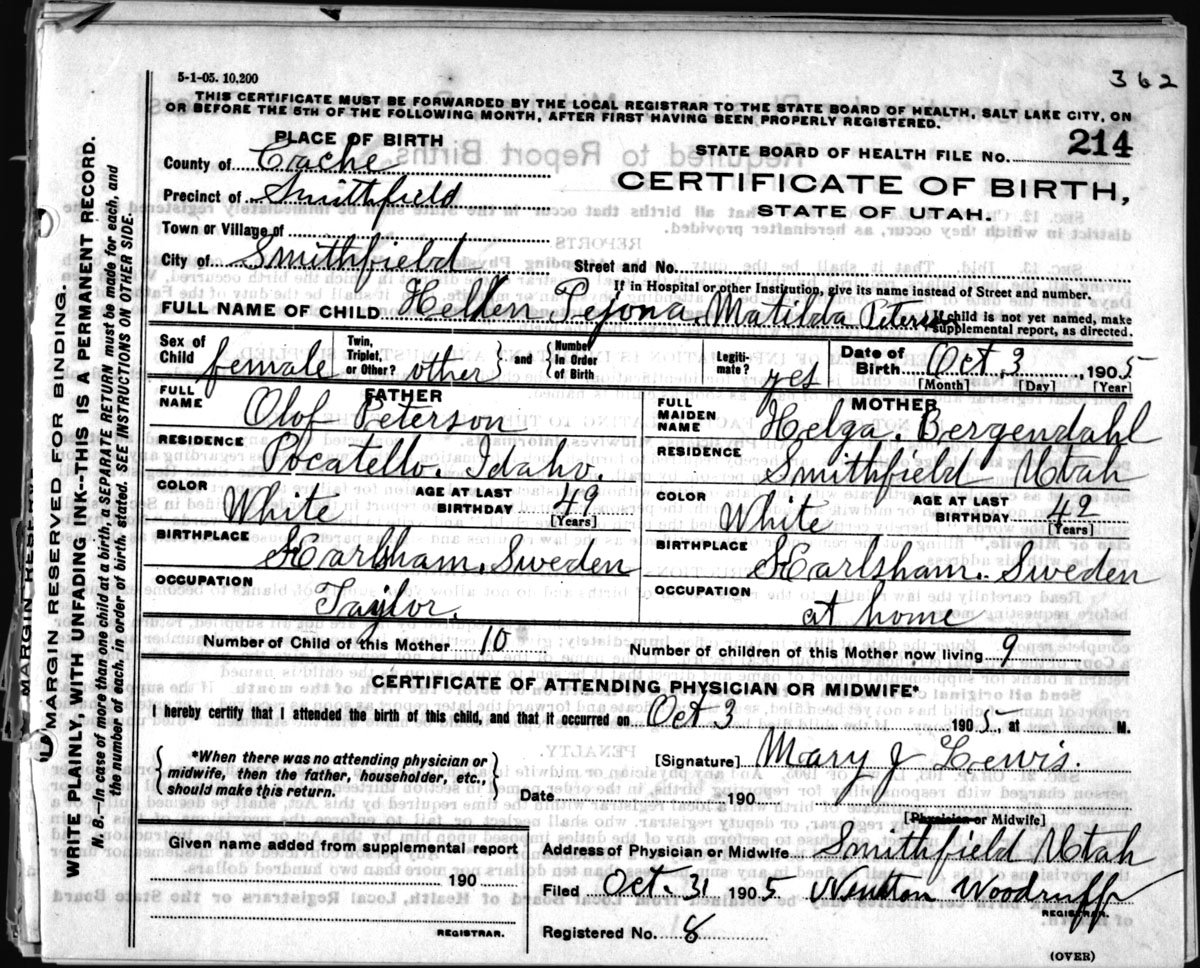 5-1-05. 10,200
362
THIS CERTIFICATE MUST BE FORWARDED BY THE LOCAL REGISTRAR TO THE STATE BOARD OF HEALTH, SALT LAKE CITY, ON
OR BEFORE THE 5TH OF THE FOLLOWING MONTH, AFTER FIRST HAVING BEEN PROPERLY REGISTERED.
PLACE OF BIRTH
STATE BOARD OF HEALTH FILE No. 214
County of Cache
CERTIFICATE OF BIRTH,
Precinct of Smithfield
STATE OF UTAH.
Town or Village of
City of Smithfield
Street and No.
If in Hospital or other Institution, give its name instead of Street and number.
FULL NAME OF CHILD Hellen Tejona. Matilda Peterson
If child is not yet named, make
supplemental report, as directed.
Sex of Child female
Twin, Triplet, or Other? other and Number in Order of Birth
Legiti-mate? yes
Date of Birth Oct. 3, 1905
[Month] [Day] [Year]
FATHER
FULL NAME Olof Peterson
RESIDENCE Pocatello. Idaho.
COLOR White AGE AT LAST BIRTHDAY 49
[Years]
BIRTHPLACE Karlsham. Sweden
OCCUPATION Taylor.
MOTHER
FULL MAIDEN NAME Helga. Bergendahl
RESIDENCE Smithfield Utah
COLOR White AGE AT LAST BIRTHDAY 42
[Years]
BIRTHPLACE Karlsham. Sweden
OCCUPATION at home
Number of Child of this Mother 10
Number of children of this Mother now living 9
CERTIFICATE OF ATTENDING PHYSICIAN OR MIDWIFE*
I hereby certify that I attended the birth of this child, and that it occurred on Oct 3 1905, at M.
*When there was no attending physician or
midwife, then the father, householder, etc.,
should make this return.
[Signature] Mary J Lewis.
Date 190
[Physician or Midwife]
Given name added from supplemental report
190
REGISTRAR.
Address of Physician or Midwife Smithfield Utah
Filed Oct. 31 1905 Newton Woodruff
REGISTRAR.
Registered No. 8
(OVER)
MARGIN RESERVED FOR BINDING.
WRITE PLAINLY, WITH UNFADING INK--THIS IS A PERMANENT RECORD.
N. B.--In case of more than one child at a birth, a SEPARATE RETURN must be made for each, and
the number of each, in order of birth, stated. SEE INSTRUCTIONS ON OTHER SIDE.